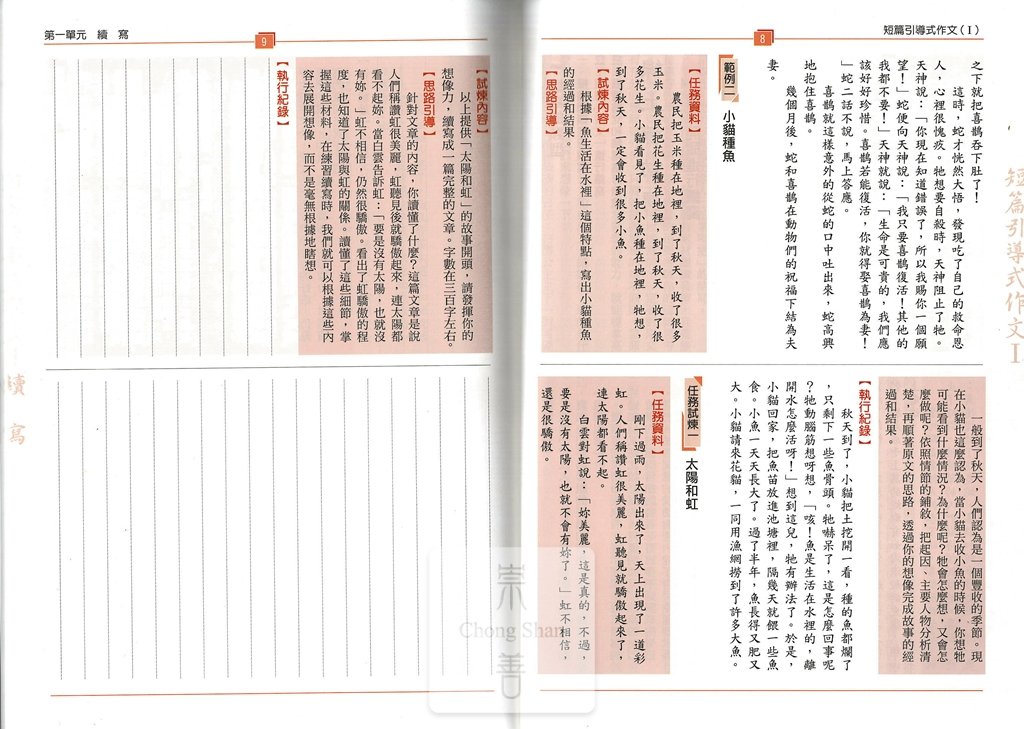 短篇引導式作文(I)
8
之下就把喜鵲吞下肚了!
這時,蛇才恍然大悟,發現吃了自己的救命恩
人,心裡很愧疚。牠想要自殺時,天神阻止了牠。
天神說:「你現在知道錯誤了,所以我賜你一個願
望!」蛇便向天神說:「我只要喜鵲復活!其他的
我都不要!」天神就說:「生命是可貴的,我們應
該好好珍惜。喜鵲若能復活,你就得娶喜鵲為妻!
」蛇二話不說,馬上答應。
喜鵲就這樣意外的從蛇的口中吐出來,蛇高興
地抱住喜鵲。
幾個月後,蛇和喜鵲在動物們的祝福下結為夫
妻。
範例二 小貓種魚
【任務資料】
農民把玉米種在地裡,到了秋天,收了很多
玉米。農民把花生種在地裡,到了秋天,收了很
多花生。小貓看見了,把小魚種在地裡,牠想,
到了秋天,一定會收到很多小魚。
【試煉內容】
根據「魚生活在水裡」這個特點,寫出小貓種魚
的經過和結果。
【思路引導】
一般到了秋天,人們認為是一個豐收的季節。現
在小貓也這麼認為,當小貓去收小魚的時候,你想牠
可能看到什麼情況?為什麼呢?牠會怎麼想,又會怎
麼做呢?依照情節的鋪敘,把起因、主要人物分析清
楚,再順著原文的思路,透過你的想像完成故事的經
過和結果。
【執行紀錄】
秋天到了,小貓把土挖開一看,種的魚都爛了
,只剩下一些魚骨頭。牠嚇呆了,這是怎麼回事呢
?牠動腦筋想呀想,「咳!魚是生活在水裡的,離
開水怎麼活呀!」想到這兒,牠有辦法了。於是,
小貓回家,把魚苗放進池塘裡,隔幾天就餵一些魚
食。小魚一天天長大了。過了半年,魚長得又肥又
大。小貓請來花貓,一同用漁網撈到了許多大魚。
任務試煉一 太陽和虹
【任務資料】
剛下過雨,太陽出來了,天上出現了一道彩
虹。人們稱讚虹很美麗,虹聽見就驕傲起來了,
連太陽都看不起。
白雲對虹說:「妳美麗,這是真的,不過,
要是沒有太陽,也就不會有妳了。」虹不相信,
還是很驕傲。
短篇引導式作文I
第一單元 續 寫
9
【試煉內容】
以上提供「太陽和虹」的故事開頭,請發揮你的
想像力,續寫成一篇完整的文章。字數在三百字左右。
【思路引導】
針對文章的內容,你讀懂了什麼?這篇文章是說
人們稱讚虹很美麗,虹聽見後就驕傲起來,連太陽都
看不起妳。當白雲告訴虹:「要是沒有太陽,也就沒
有妳。」虹不相信,仍然很驕傲。看出了虹驕傲的程
度,也知道了太陽與虹的關係。讀懂了這些細節,掌
握這些材料,在練習續寫時,我們就可以根據這些內
容去展開想像,而不是毫無根據地瞎想。
【執行紀錄】
續 寫
崇善
Chong Shan